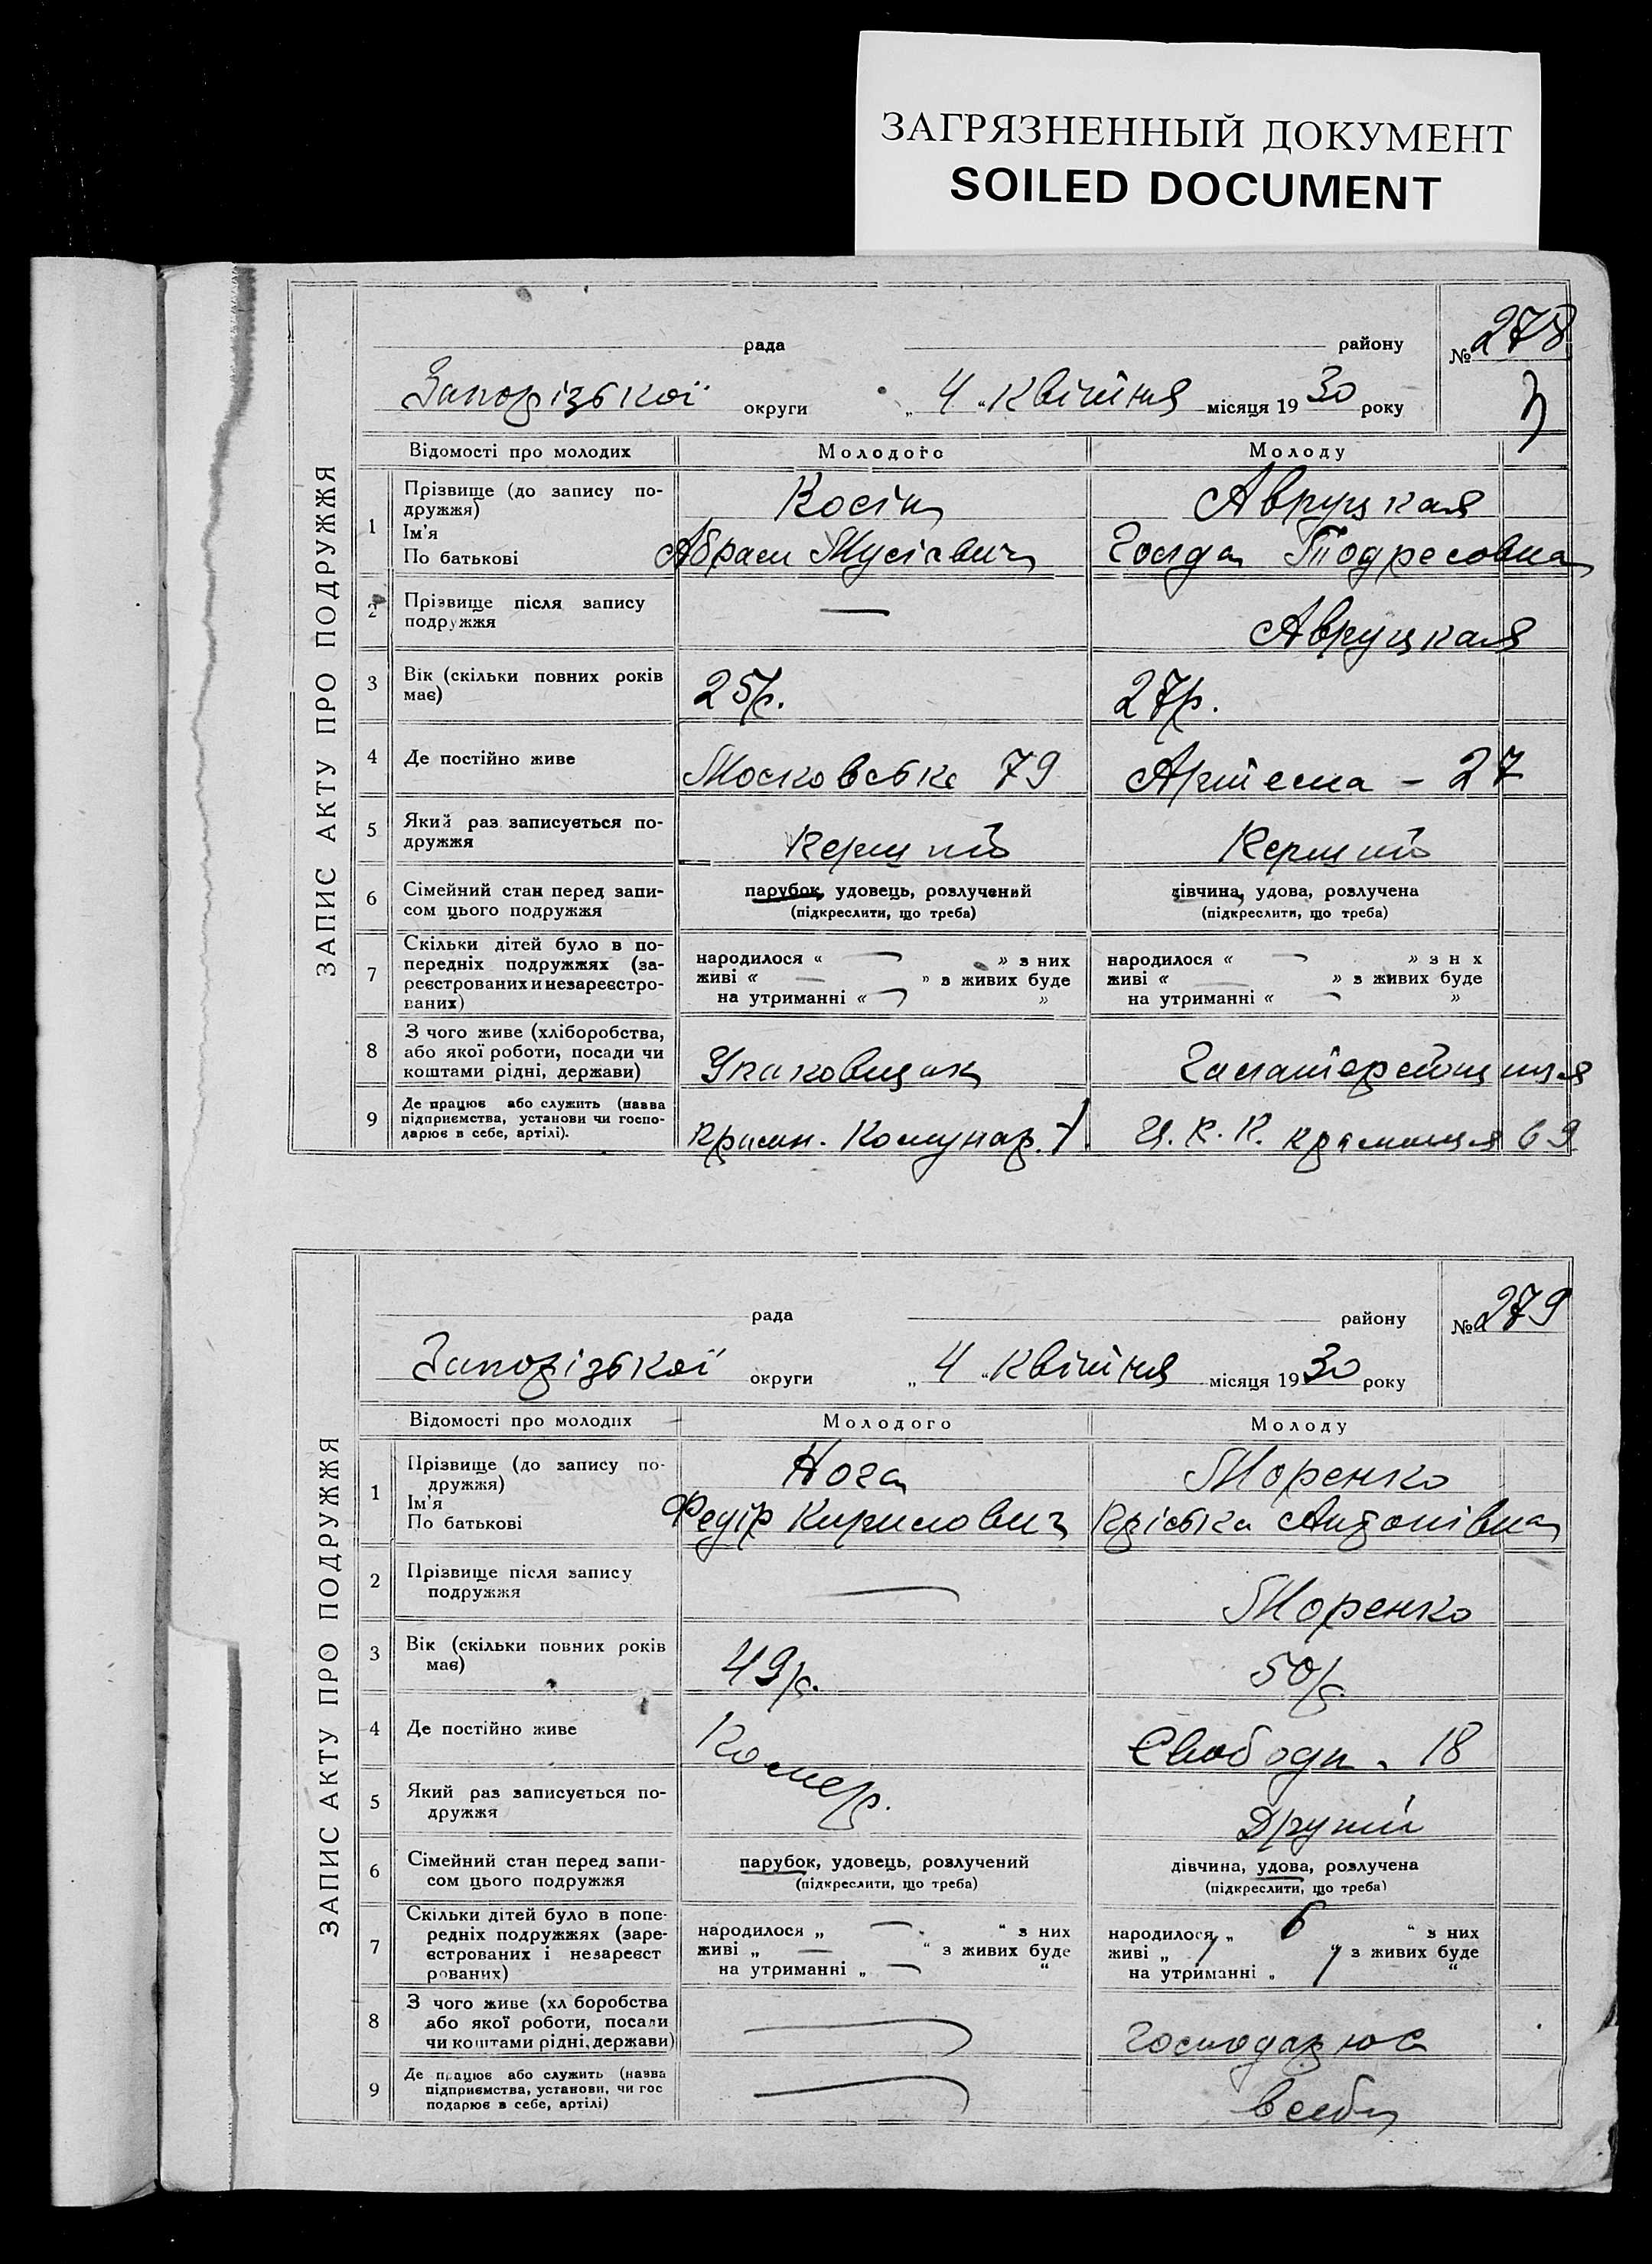 ЗАГРЯЗНЕННЫЙ ДОКУМЕНТ
SOILED DOCUMENT
ЗАПИС АКТУ ПРО ПОДРУЖЖЯ
рада району № 278
Запорізької округи „4“ квітня місяця 1930 року
Відомості про молодих Молодого Молоду
1 Прізвище (до запису по-
дружжя)
Ім'я
По батькові
Косін
Абрам Мусієвич
Авруцкая
Голда Тодресовна
2 Прізвище після запису
подружжя
— Авруцкая
3 Вік (скільки повних років
має)
25р. 27р.
4 Де постійно живе Московська 79 Артема – 27
5 Який раз записується по-
дружжя
Перший Перший
6 Сімейний стан перед запи-
сом цього подружжя
парубок, удовець, розлучений
(підкреслити, що треба)
дівчина, удова, розлучена
(підкреслити, що треба)
7 Скільки дітей було в по-
передніх подружжях (за-
реєстрованих и незареєстро-
ваних)
народилося « — » з них
живі « — » з живих буде
на утриманні « — »
народилося « — » з н х
живі « — » з живих буде
на утриманні « — »
8 З чого живе (хліборобства,
або якої роботи, посади чи
коштами рідні, держави)
Упаковщик
9 Де працює або служить (назва
підприємства, установи чи госпо-
дарює в себе, артілі).
Комунар. Ц.Р.К. крамниця 69
ЗАПИС АКТУ ПРО ПОДРУЖЖЯ
рада району № 279
Запорізької округи „4“ квітня місяця 1930 року
Відомості про молодих Молодого Молоду
1 Прізвище (до запису по-
дружжя)
Ім'я
По батькові
Нога
Федір Кирилович
Моренко
Антонівна
2 Прізвище після запису
подружжя
— Моренко
3 Вік (скільки повних років
має)
49р. 50р.
4 Де постійно живе Свободи. 18
5 Який раз записується по-
дружжя
Другий
6 Сімейний стан перед запи-
сом цього подружжя
парубок, удовець, розлучений
(підкреслити, що треба)
дівчина, удова, розлучена
(підкреслити, що треба)
7 Скільки дітей було в попе-
редніх подружжях (заре-
єстрованих і незареєст
рованих)
народилося „ — “ з них
живі „ — “ з живих буде
на утриманні „ — “
народилося „ 6 “ з них
живі „ “ з живих буде
на утриманні „ “
8 З чого живе (хл боробства
або якої роботи, посади
чи коштами рідні, держави)
— Господарює
9 Де працює або служить (назва
підприємства, установи, чи гос
подарює в себе, артілі)
— в себе